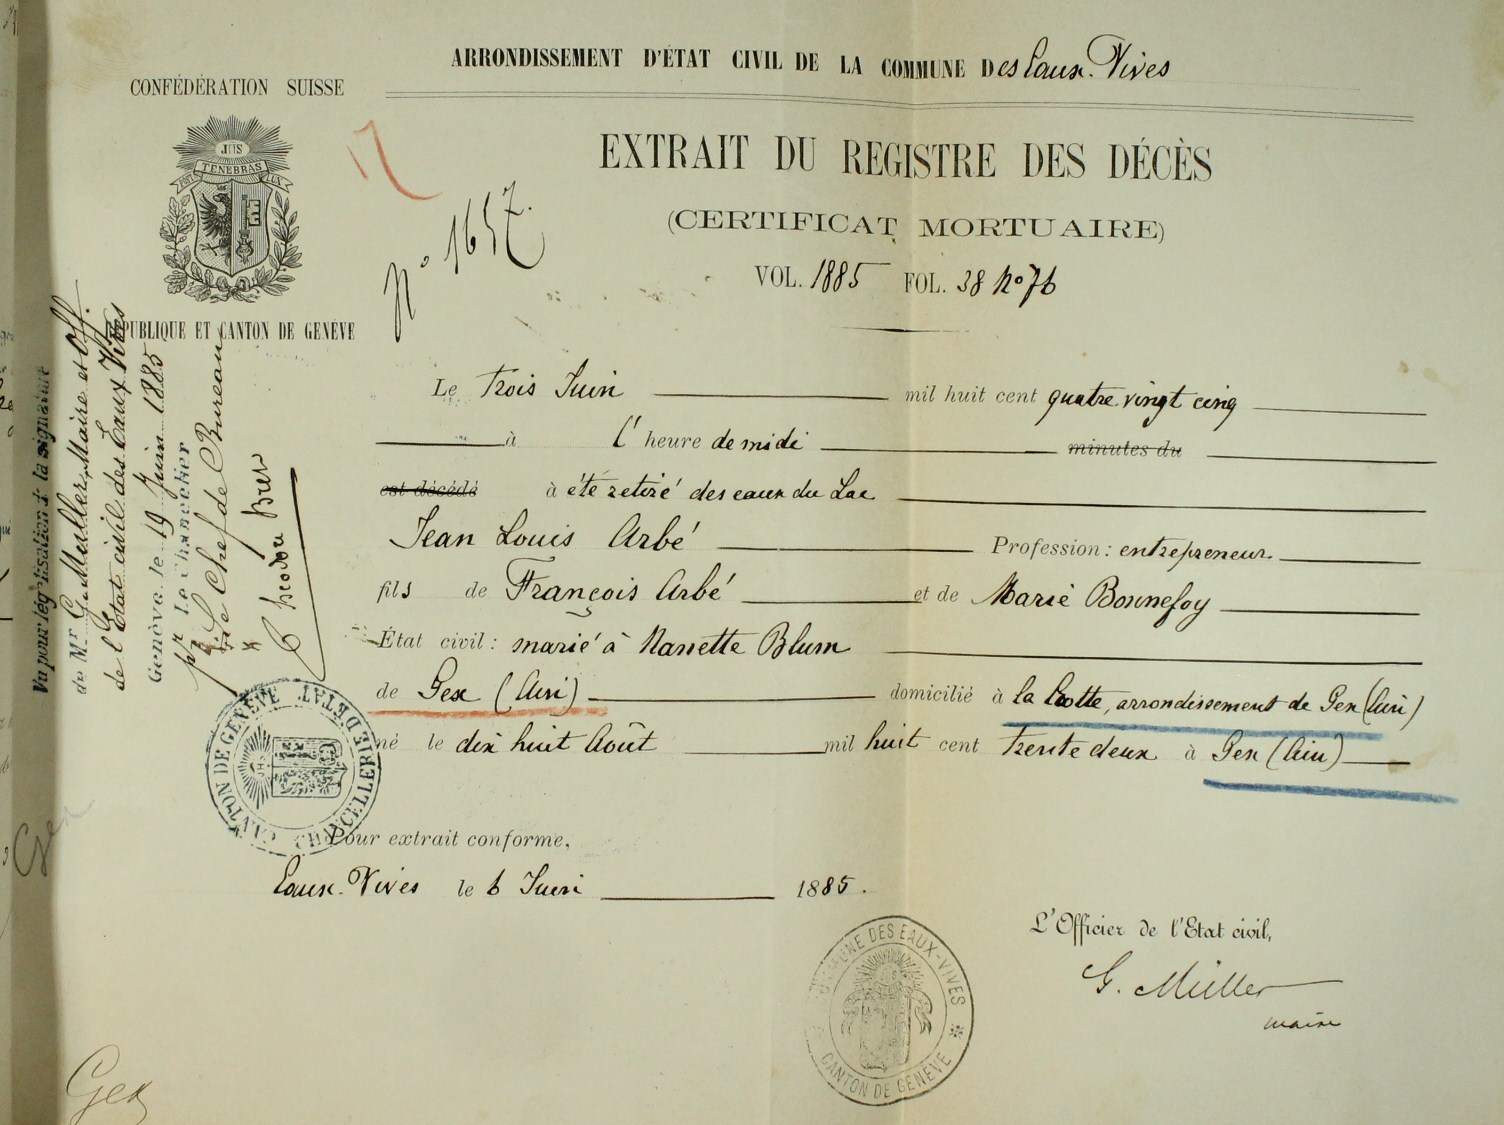 ARRONDISSEMENT D'ÉTAT CIVIL DE LA COMMUNE Des Eaux-Vives
CONFÉDÉRATION SUISSE
POST TENEBRAS LUX
PUBLIQUE ET CANTON DE GENÈVE
EXTRAIT DU REGISTRE DES DÉCÈS
(CERTIFICAT MORTUAIRE)
N° 1657.
VOL. 1885 FOL. 38 No 76
Le trois Juin mil huit cent quatre vingt cinq
à l'heure de midi minutes du
est décédé à été retiré des eaux du Lac
Jean Louis Arbé Profession: entrepreneur
fils de François Arbé et de Marie Bonnefoy
État civil: marié à Nanette Blum
de Gex (Ain) domicilié à la Cotte, arrondissement de Gex (Ain)
né le dix huit Août mil huit cent trente deux à Gex (Ain)
Pour extrait conforme,
Eaux-Vives le 6 Juin 1885.
L'Officier de l'Etat civil,
G. Müller
maire
Vu pour légalisation de la signature
de Mr G. Muller, Maire et Off.
de l'Etat civil des Eaux Vives
Genève, le 19 Juin 1885
pr Le Chancelier
Le Chef de Bureau
CANTON DE GENÈVE CHANCELLERIE D'ETAT
COMMUNE DES EAUX-VIVES * CANTON DE GENÈVE
Gex
Gex